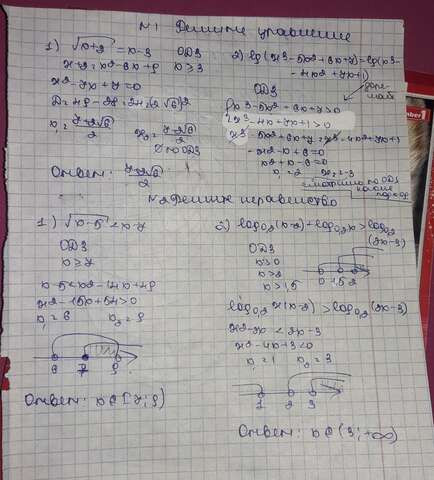 N1 Решите уравнение
1) √(x+2) = x-3
ОДЗ
x ≥ 3
x²-7x+7=0
x₁ = 
x₂ = 
∉ ОДЗ
Ответ:
2) lg(x³-5x²+6x+7)=lg(x³-
-4x²+7x+1)
ОДЗ
x³-5x²+6x+7>0
x³-4x²+7x+1>0
x³-5x²+6x+7=x³-4x²+7x+1
-x²-x+6=0
x²+x-6=0
x₁=2 x₂=-3
N2 Решите неравенство
1) √(x-5) < x-7
ОДЗ
x≥7
x-5<x²-14x+49
x²-15x+54>0
x₁=6 x₂=9
6 7 9
Ответ: x∈[7;9)
2) log₀,₂(x-2)+log₀,₂x>log₀,₂
(2x-3)
ОДЗ
x>0
x>2
x>1,5
0 1,5 2
log₀,₂ x(x-2) > log₀,₂(2x-3)
x²-2x < 2x-3
x²-4x+3<0
x₁=1 x₂=3
1 2 3
Ответ: x∈(3;+∞)